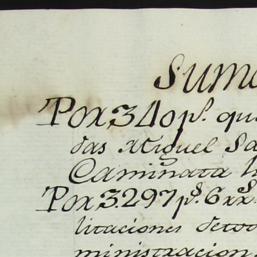 Suma
Por 340 p.s qu
das Miguel Sa
Caminata l
Por 3.297 p.s 6 rr
litaciones de to
ministracion